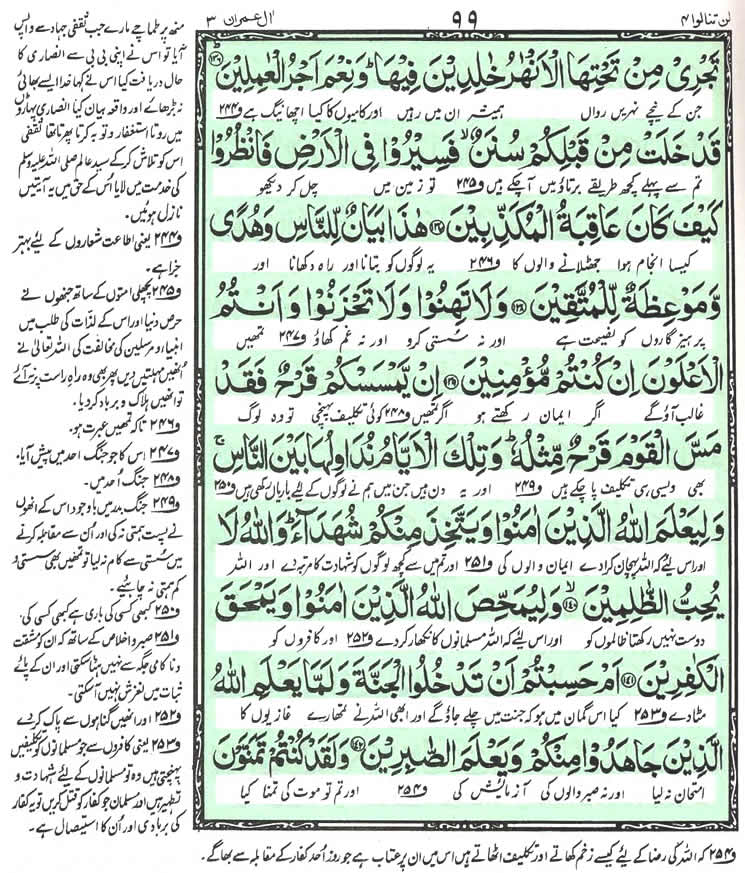 لن تنالوا ۴
۹۹
اٰل عمران ۳
تَجْرِىْ مِنْ تَحْتِهَا الْاَنْهٰرُ خٰلِدِيْنَ فِيْهَا ؕ وَنِعْمَ اَجْرُ الْعٰمِلِيْنَ ﴿۱۳۶﴾
جن کے نیچے نہریں رواں ہمیشہ ان میں رہیں اور کامیوں کا کیا اچھا نیگ ہے و۲۴۴
قَدْ خَلَتْ مِنْ قَبْلِكُمْ سُنَنٌ ۙ فَسِيْرُوْا فِى الْاَرْضِ فَانْظُرُوْا
تم سے پہلے کچھ طریقے برتاؤ میں آچکے ہیں و۲۴۵ تو زمین میں چل کر دیکھو
كَيْفَ كَانَ عَاقِبَةُ الْمُكَذِّبِيْنَ ﴿۱۳۷﴾ هٰذَا بَيَانٌ لِّلنَّاسِ وَهُدًى
کیسا انجام ہوا جھٹلانے والوں کا و۲۴۶ یہ لوگوں کو بتانا اور راہ دکھانا اور
وَّمَوْعِظَةٌ لِّلْمُتَّقِيْنَ ﴿۱۳۸﴾ وَلَا تَهِنُوْا وَلَا تَحْزَنُوْا وَاَنْتُمُ
پرہیزگاروں کو نصیحت ہے اور نہ سستی کرو اور نہ غم کھاؤ و۲۴۷ تمھیں
الْاَعْلَوْنَ اِنْ كُنْتُمْ مُّؤْمِنِيْنَ ﴿۱۳۹﴾ اِنْ يَّمْسَسْكُمْ قَرْحٌ فَقَدْ
غالب آؤ گے اگر ایمان رکھتے ہو اگر تمھیں و۲۴۸ کوئی تکلیف پہنچی تو وہ لوگ
مَسَّ الْقَوْمَ قَرْحٌ مِّثْلُهٗ ؕ وَتِلْكَ الْاَيَّامُ نُدَاوِلُهَا بَيْنَ النَّاسِ ۚ
بھی ویسی ہی تکلیف پا چکے ہیں و۲۴۹ اور یہ دن ہیں جن میں ہم نے لوگوں کے لیے باریاں رکھی ہیں و۲۵۰
وَلِيَعْلَمَ اللّٰهُ الَّذِيْنَ اٰمَنُوْا وَيَتَّخِذَ مِنْكُمْ شُهَدَآءَ ؕ وَاللّٰهُ لَا
اور اس لئے کہ اللہ پہچان کرا دے ایمان والوں کی و۲۵۱ اور تم میں سے کچھ لوگوں کو شہادت کا مرتبہ دے اور اللہ
يُحِبُّ الظّٰلِمِيْنَ ﴿۱۴۰﴾ وَلِيُمَحِّصَ اللّٰهُ الَّذِيْنَ اٰمَنُوْا وَيَمْحَقَ
دوست نہیں رکھتا ظالموں کو اور اس لئے کہ اللہ مسلمانوں کا نکھار کر دے و۲۵۲ اور کافروں کو
الْكٰفِرِيْنَ ﴿۱۴۱﴾ اَمْ حَسِبْتُمْ اَنْ تَدْخُلُوا الْجَنَّةَ وَلَمَّا يَعْلَمِ اللّٰهُ
مٹا دے و۲۵۳ کیا اس گمان میں ہو کہ جنت میں چلے جاؤ گے اور ابھی اللہ نے تمھارے غازیوں کا
الَّذِيْنَ جَاهَدُوْا مِنْكُمْ وَيَعْلَمَ الصّٰبِرِيْنَ ﴿۱۴۲﴾ وَلَقَدْ كُنْتُمْ تَمَنَّوْنَ
امتحان نہ لیا اور نہ صبر والوں کی آزمائش کی و۲۵۴ اور تم تو موت کی تمنا کیا
منھ پر طمانچے مارے جب ثقفی جہاد سے واپس
آیا تو اس نے اپنی بی بی سے انصاری کا
حال دریافت کیا اس نے کہا خدا ایسے بھائی
نہ بڑھائے اور واقعہ بیان کیا انصاری پہاڑوں
میں روتا استغفار و توبہ کرتا پھرتا تھا ثقفی
اس کو تلاش کر کے سید عالم صلی اللہ علیہ وسلم
کی خدمت میں لایا اس کے حق میں یہ آیتیں
نازل ہوئیں۔
و۲۴۴ یعنی اطاعت شعاروں کے لئے بہتر
جزا ہے۔
و۲۴۵ پچھلی امتوں کے ساتھ جنھوں نے
حرص دنیا اور اس کے لذات کی طلب میں
انبیاء و مرسلین کی مخالفت کی اللہ تعالیٰ نے
انھیں مہلتیں دیں پھر بھی وہ راہ راست پر نہ آئے
تو انھیں ہلاک و برباد کر دیا۔
و۲۴۶ تاکہ تمھیں عبرت ہو۔
و۲۴۷ اس کا جو جنگ احد میں پیش آیا۔
و۲۴۸ جنگ احد میں۔
و۲۴۹ جنگ بدر میں باوجود اس کے انھوں
نے پست ہمتی نہ کی اور ان سے مقابلہ کرنے
میں سستی سے کام نہ لیا تو تمھیں بھی سستی و
کم ہمتی نہ چاہیئے۔
و۲۵۰ کبھی کسی کی باری ہے کبھی کسی کی۔
و۲۵۱ صبر و اخلاص کے ساتھ کہ ان کو مشقت
و ناکامی جگہ سے نہیں ہٹا سکتی اور ان کے پائے
ثبات میں لغزش نہیں آسکتی۔
و۲۵۲ اور انھیں گناہوں سے پاک کر دے
و۲۵۳ یعنی کافروں سے جو مسلمانوں کو تکلیفیں
پہنچتی ہیں وہ تو مسلمانوں کے لئے شہادت و
تطہیر ہیں اور مسلمان جو کفار کو قتل کریں تو یہ کفار
کی بربادی اور ان کا استیصال ہے۔
و۲۵۴ کہ اللہ کی رضا کے لئے کیسے زخم کھاتے اور تکلیف اٹھاتے ہیں اس میں ان پر عتاب ہے جو روز احد کفار کے مقابلہ سے بھاگے۔